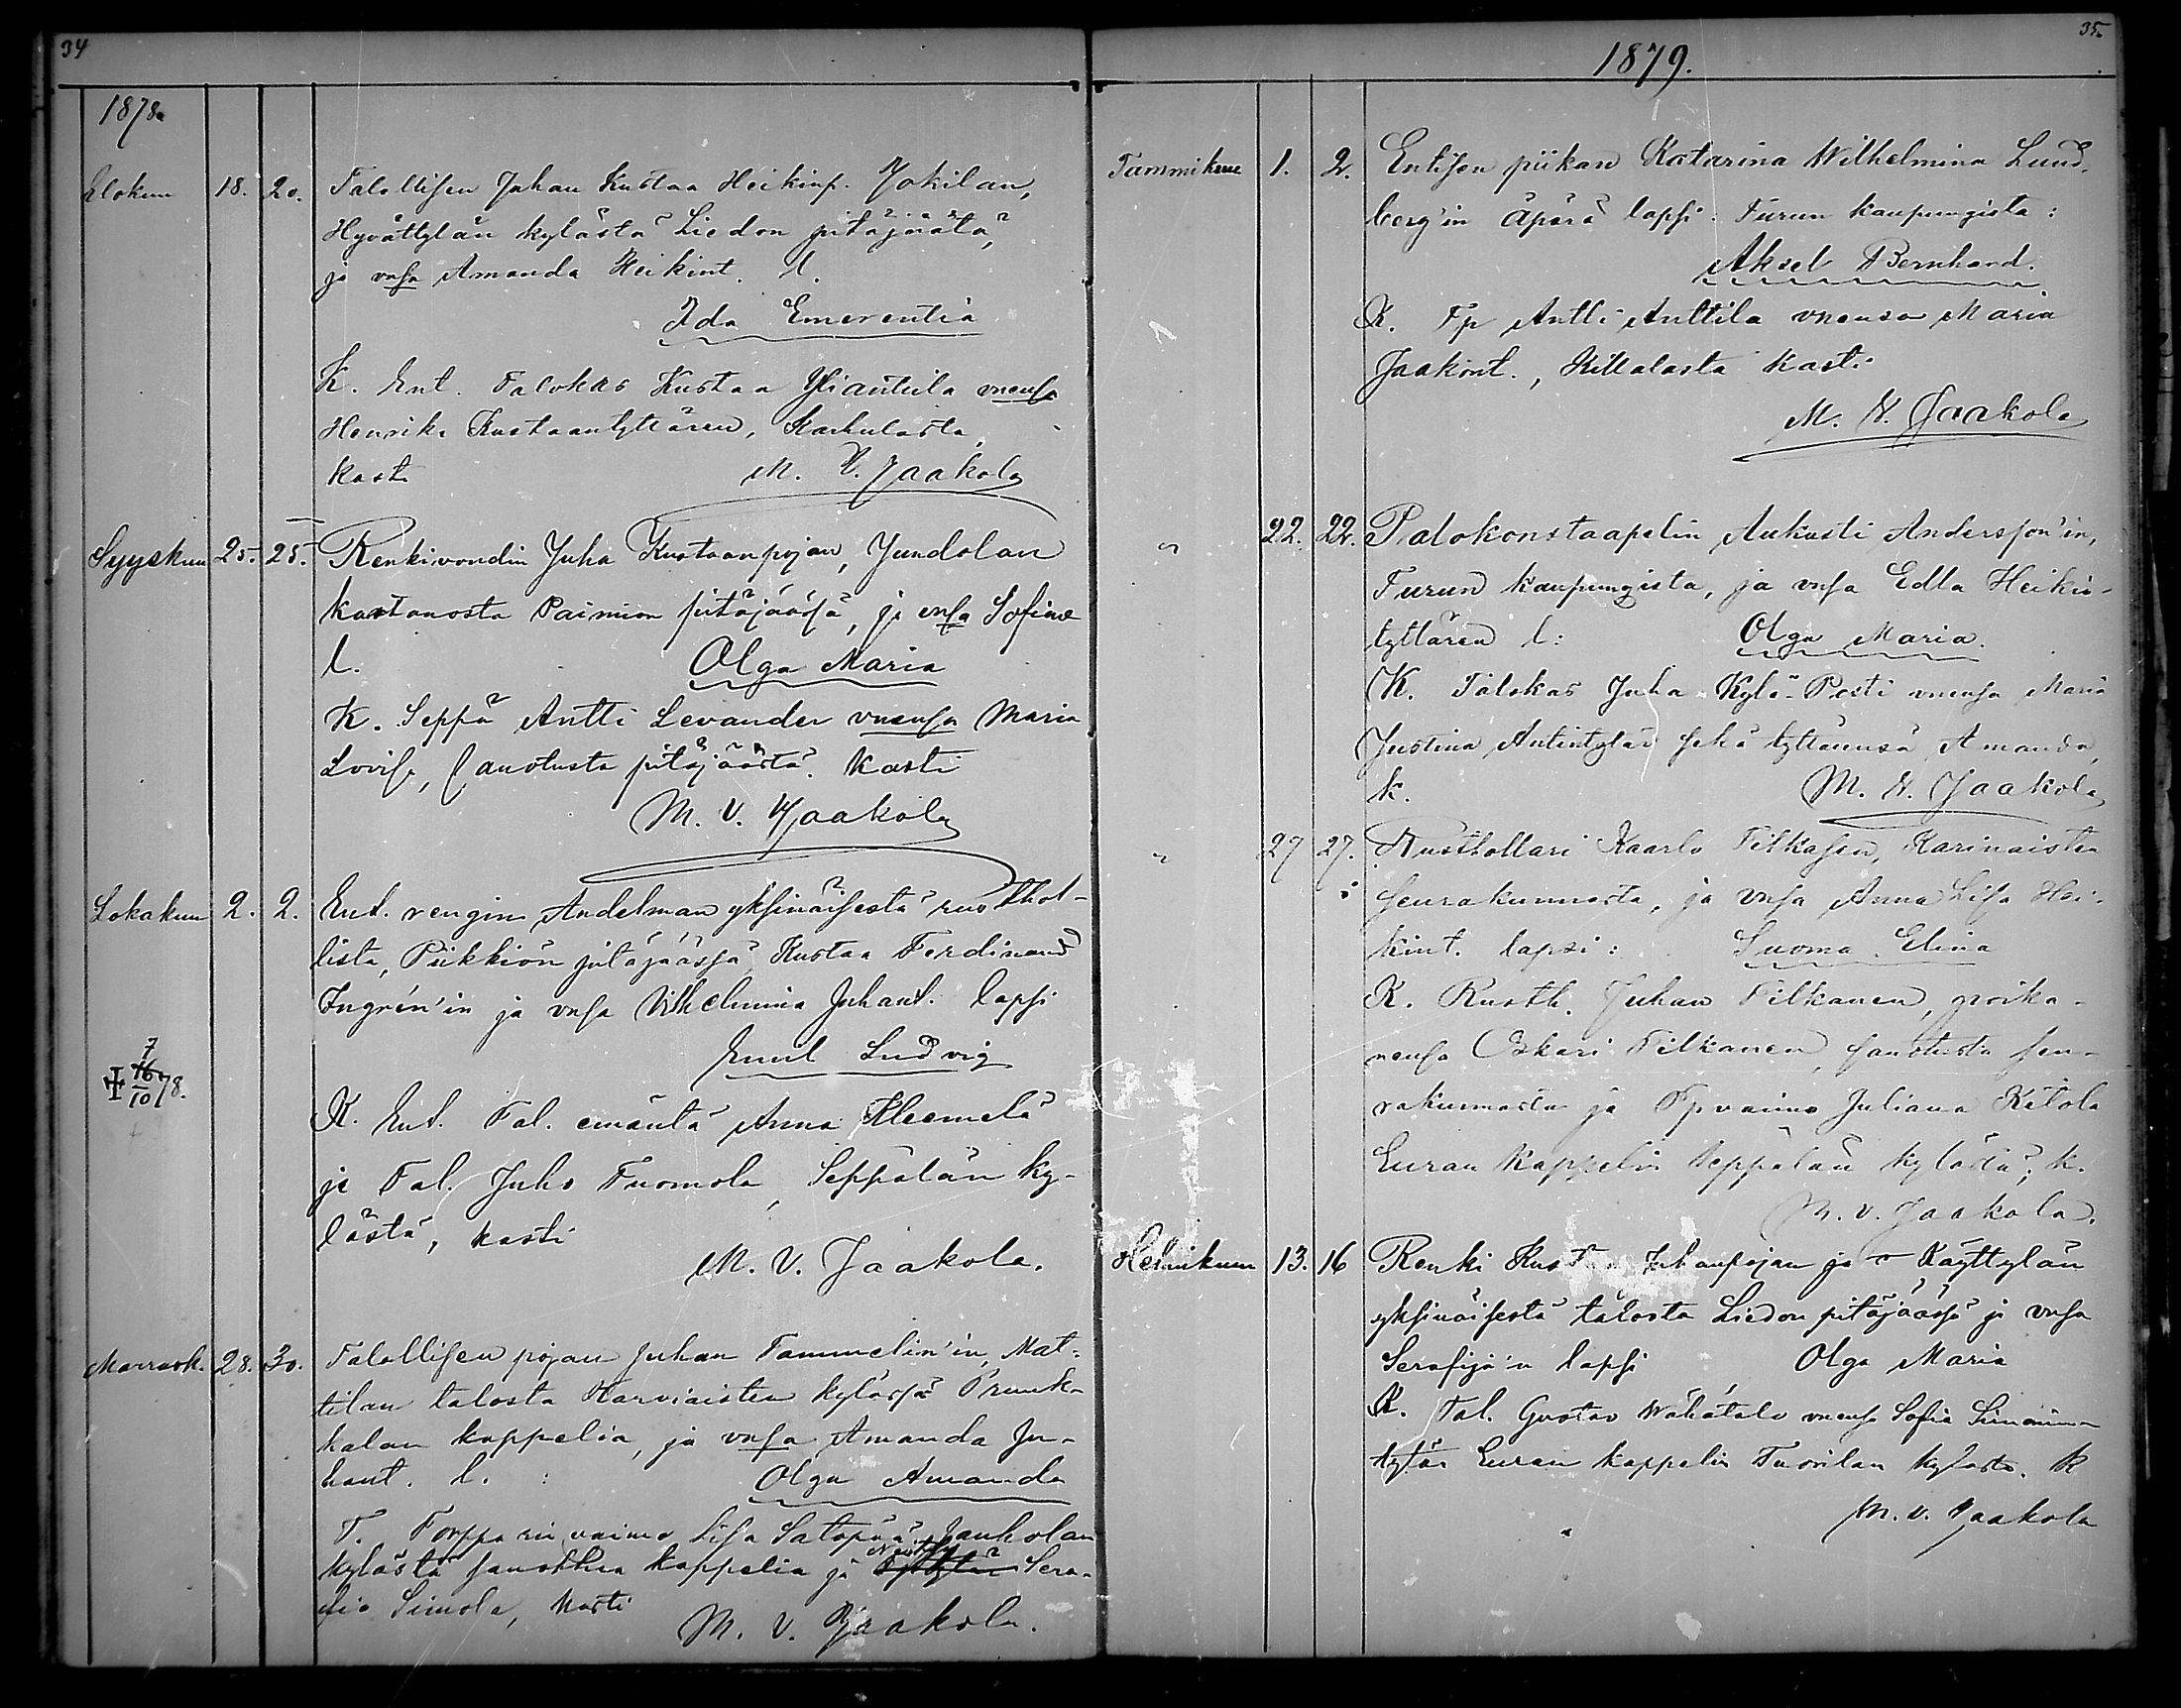 34
1878.
Elokuu 18. 20. Talollisen Juhan Kustaa Heikinp. Jokilan,
Hyvättylän kylästä Liedon pitäjästä,
ja vnsa Amanda Heikint. l.
Ida Emerentia
K. Ent. Talokas Kustaa Yliäntilä vneusa
Henrika Kustaantyttären, Karhulasta,
kasti M. V. Jaakola
Syyskuu 25. 25. Renkivoudin Juha Kustaanpojan, Jundolan
kartanosta Paimion pitäjäässä, ja vnsa Sofian
l. Olga Maria
K. Seppä Antti Levander vneusa Maria
Lovisa, sanotusta pitäjäästä. Kasti
M. V. Jaakola
Lokakuu 2. 2. Ent. rengin Andelman yksinäisestä rusthol-
lista, Piikkiön pitäjäässä, Kustaa Ferdinand
Ingrén'in ja vnsa Vilhelmina Juhant. lapsi
Emil Ludvig
7
16
10 78.
K. Ent. Tal. emäntä Anna Kleemelä
ja Tal. Juho Tuomola, Seppälän ky-
lästä, kasti
M. V. Jaakola.
Marrask. 28. 30. Talollisen pojan Juhan Tammelin'in, Mat-
tilan talosta Karviaisten kylässä Prunk-
kalan kappelia, ja vnsa Amanda Ju-
hant. l. : Olga Amanda
T. Torpparin vaimo Lisa Satopää Jauholan
kylästä sanottua kappelia ja Neitsy Sera-
fia Simola, kasti
M. V. Jaakola.
35.
1879.
Tammikuu 1. 2. Entisen piikan Katarina Wilhelmina Lund-
berg'in äpärä lapsi: Turun kaupungista:
Aksel Bernhard.
K. Tp Antti Anttila vneusa Maria
Jaakont., Killalasta kasti
M. V. Jaakola
" 22. 22. Palokonstaapelin Aukusti Andersson'in,
Turun kaupungista, ja vnsa Edla Heikin-
tyttären l: Olga Maria.
K. Talokas Juha Kylä-Pesti vneusa Maria
Justina Antintytär sekä tyttäreusä Amanda,
k. M. V. Jaakola
" 27 27. Rusthollari Kaarlo Tilkasen, Karinaisten
seurakunnasta, ja vnsa Anna Lisa Hei-
kint. lapsi: Suoma Elina
K. Rusth. Juhan Tilkanen, poika-
neusa Oskari Tilkanen, sanotusta seu-
rakunnasta ja Tpvaimo Juliana Kitola
Euran Kappelin Seppälän kylästä, k.
M. V. Jaakola.
Helmikuu 13. 16 Renki Kust Juhanpojan ja Käyttylän
yksinäisestä talosta Liedon pitäjäässä ja vnsa
Serafija'n lapsi Olga Maria
K. Tal. Gustav Wähätalo vneusa Sofia Simonin-
tytär Euran kappelin Tuovilan kylästä. k
M. V. Jaakola